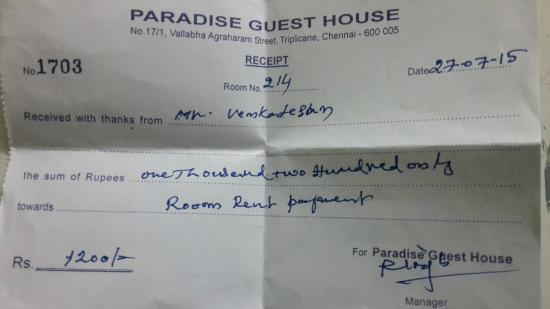 PARADISE GUEST HOUSE
No.17/1, Vallabha Agraharam Street, Triplicane, Chennai - 600 005
No.1703 RECEIPT Date 27-07-15
Room No. 214
Received with thanks from Mr. Venkatesan
the sum of Rupees one Thousand two Hundred only
towards Room Rent payment
Rs. 1200/- For Paradise Guest House
Manager